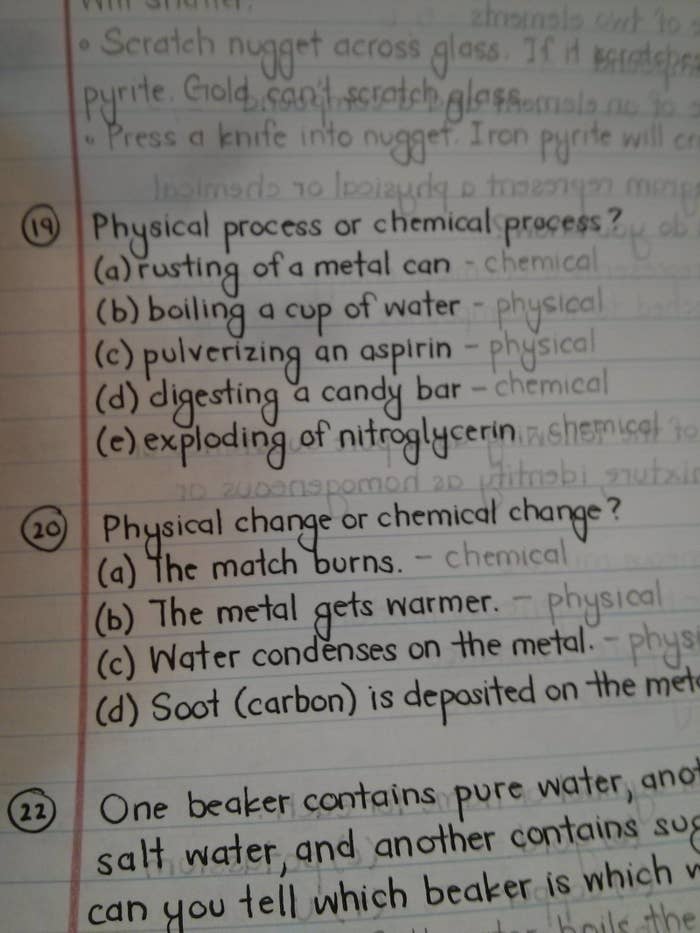 • Scratch nugget across glass. If it scratches
pyrite. Gold can't scratch glass.
• Press a knife into nugget. Iron pyrite will
19 Physical process or chemical process?
(a) rusting of a metal can - chemical
(b) boiling a cup of water - physical
(c) pulverizing an aspirin - physical
(d) digesting a candy bar - chemical
(e) exploding of nitroglycerin - chemical
20 Physical change or chemical change?
(a) The match burns. - chemical
(b) The metal gets warmer. - physical
(c) Water condenses on the metal. - physi
(d) Soot (carbon) is deposited on the met
22 One beaker contains pure water, anot
salt water, and another contains sug
can you tell which beaker is which w
boils the